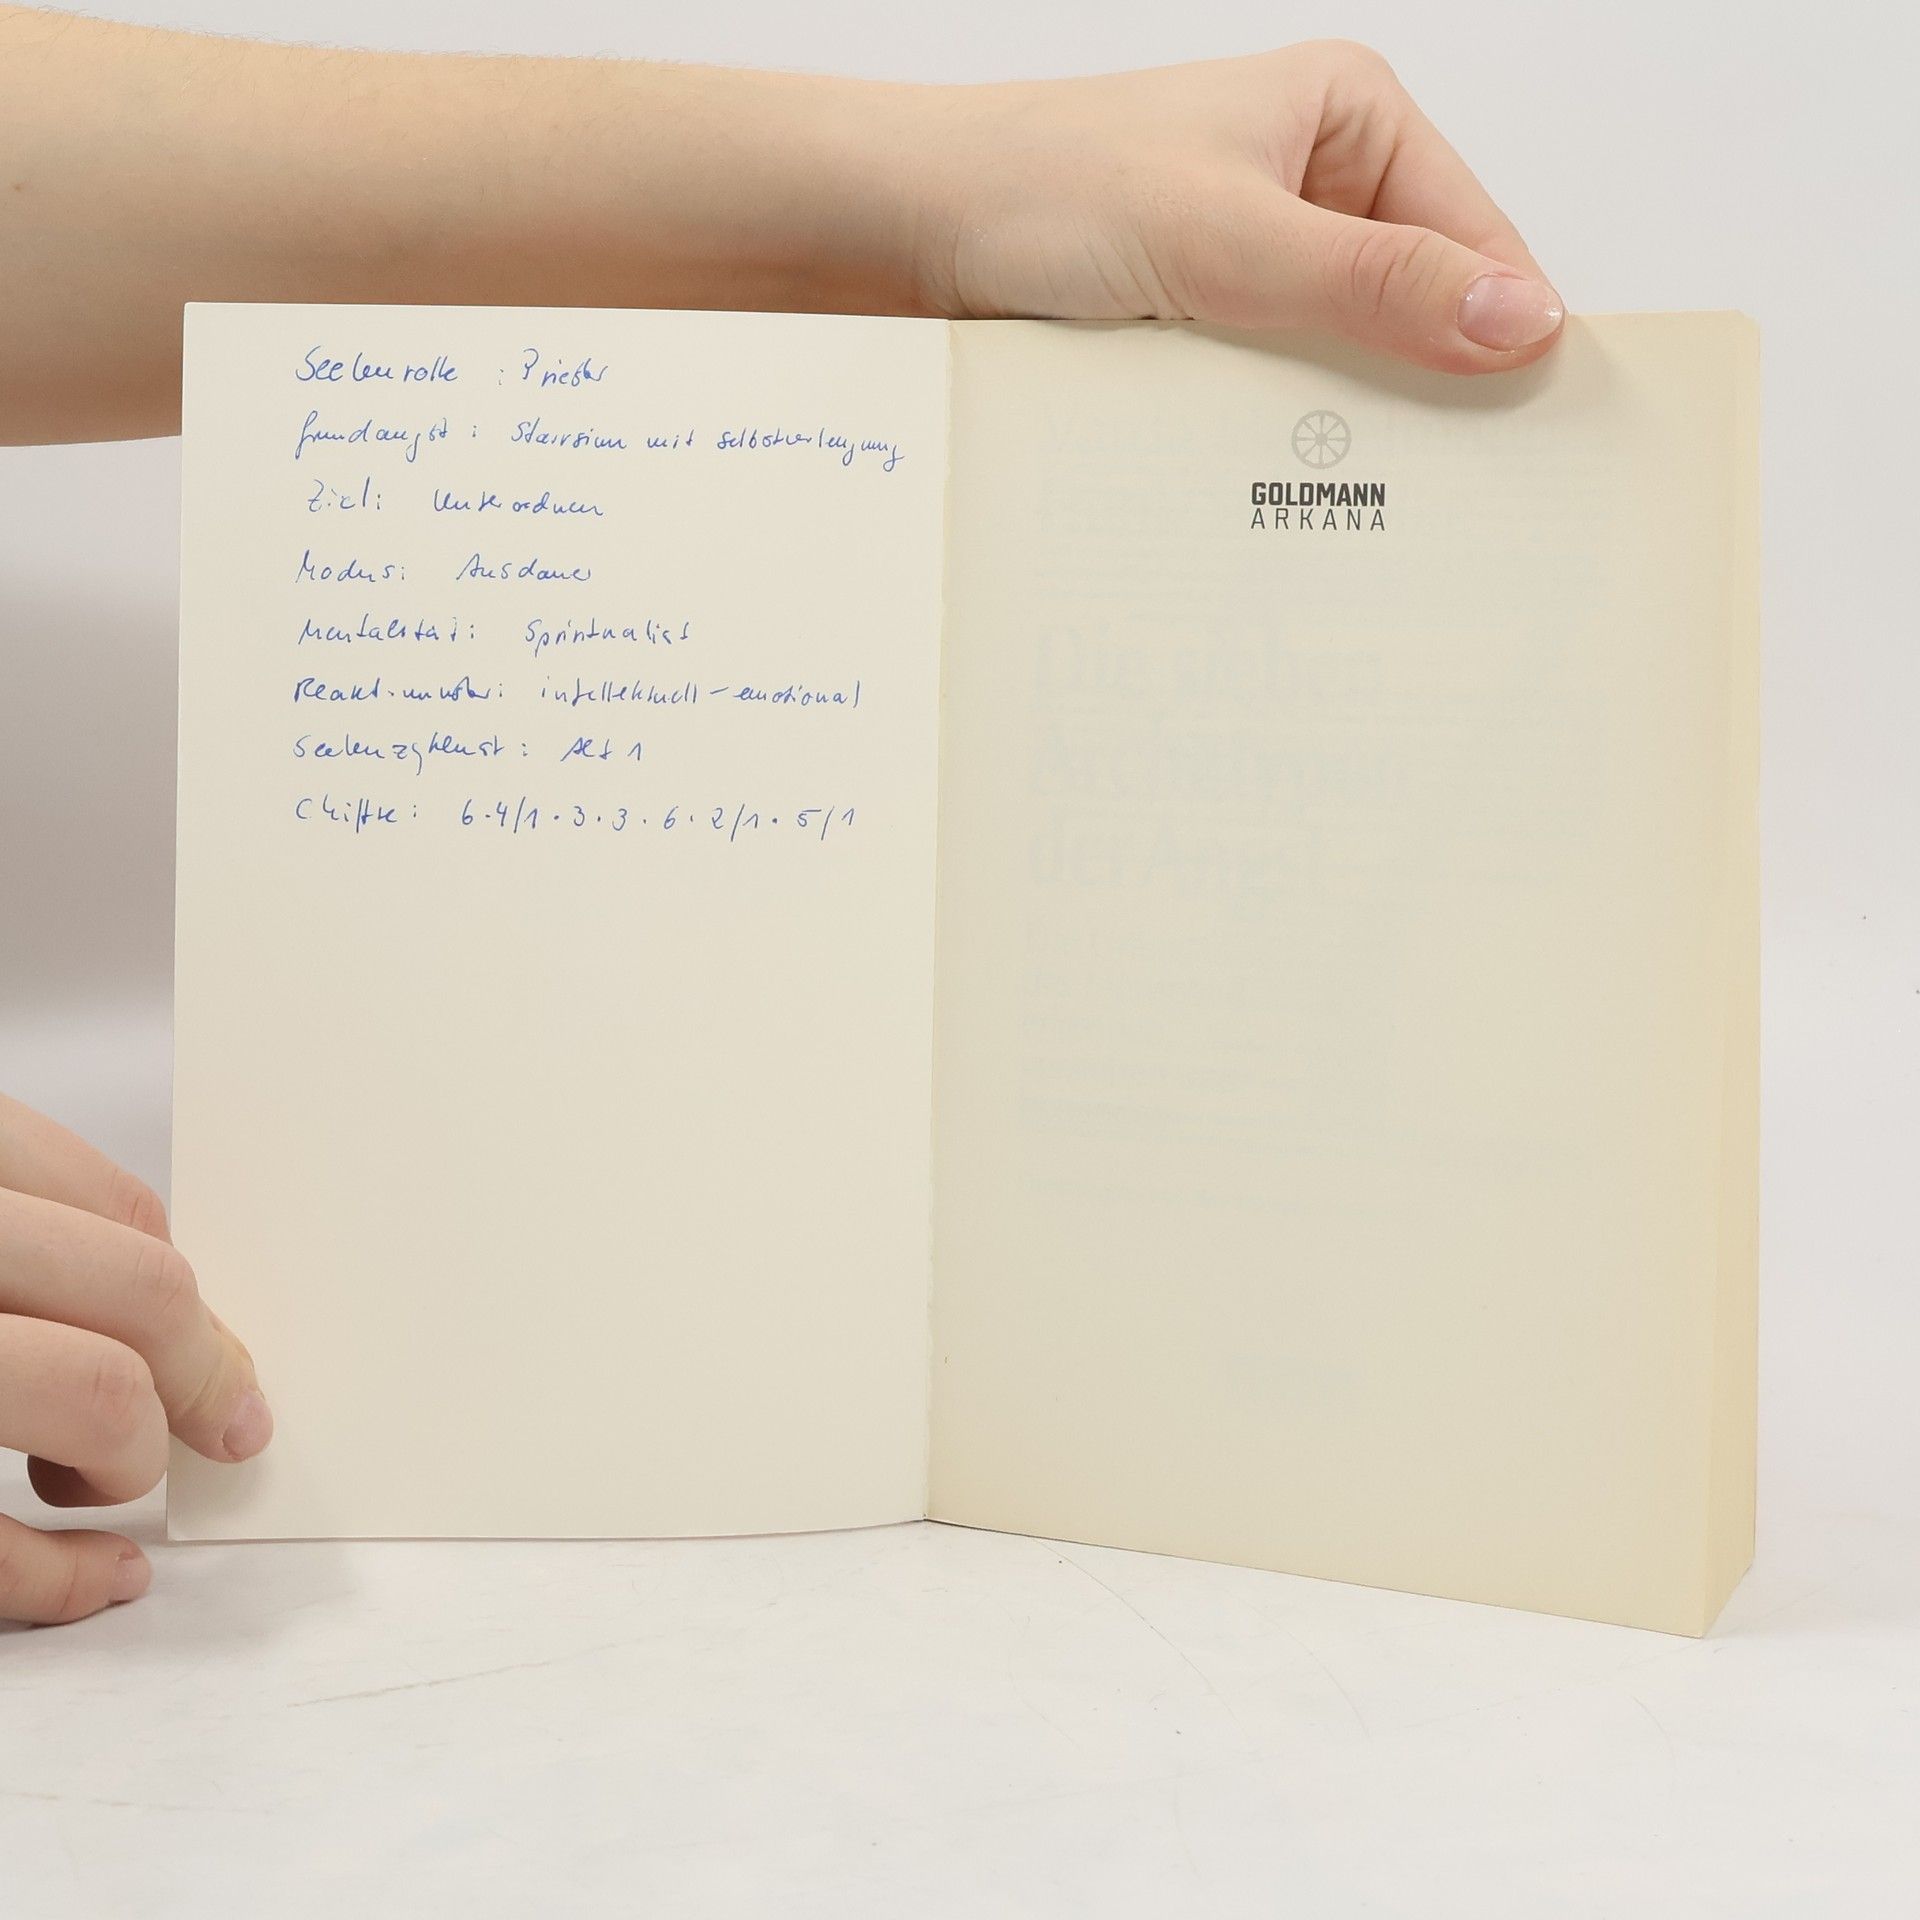 Seelenrolle : Priester
Grundangst : Starrsinn mit Selbstverleugnung
Ziel: Unterordnen
Modus: Ausdauer
Mentalität: Spiritualist
Reakt.muster: intellektuell – emotional
Alt 1
Chiffre: 6·4/1·3·3·6·2/1·5/1
GOLDMANN
ARKANA